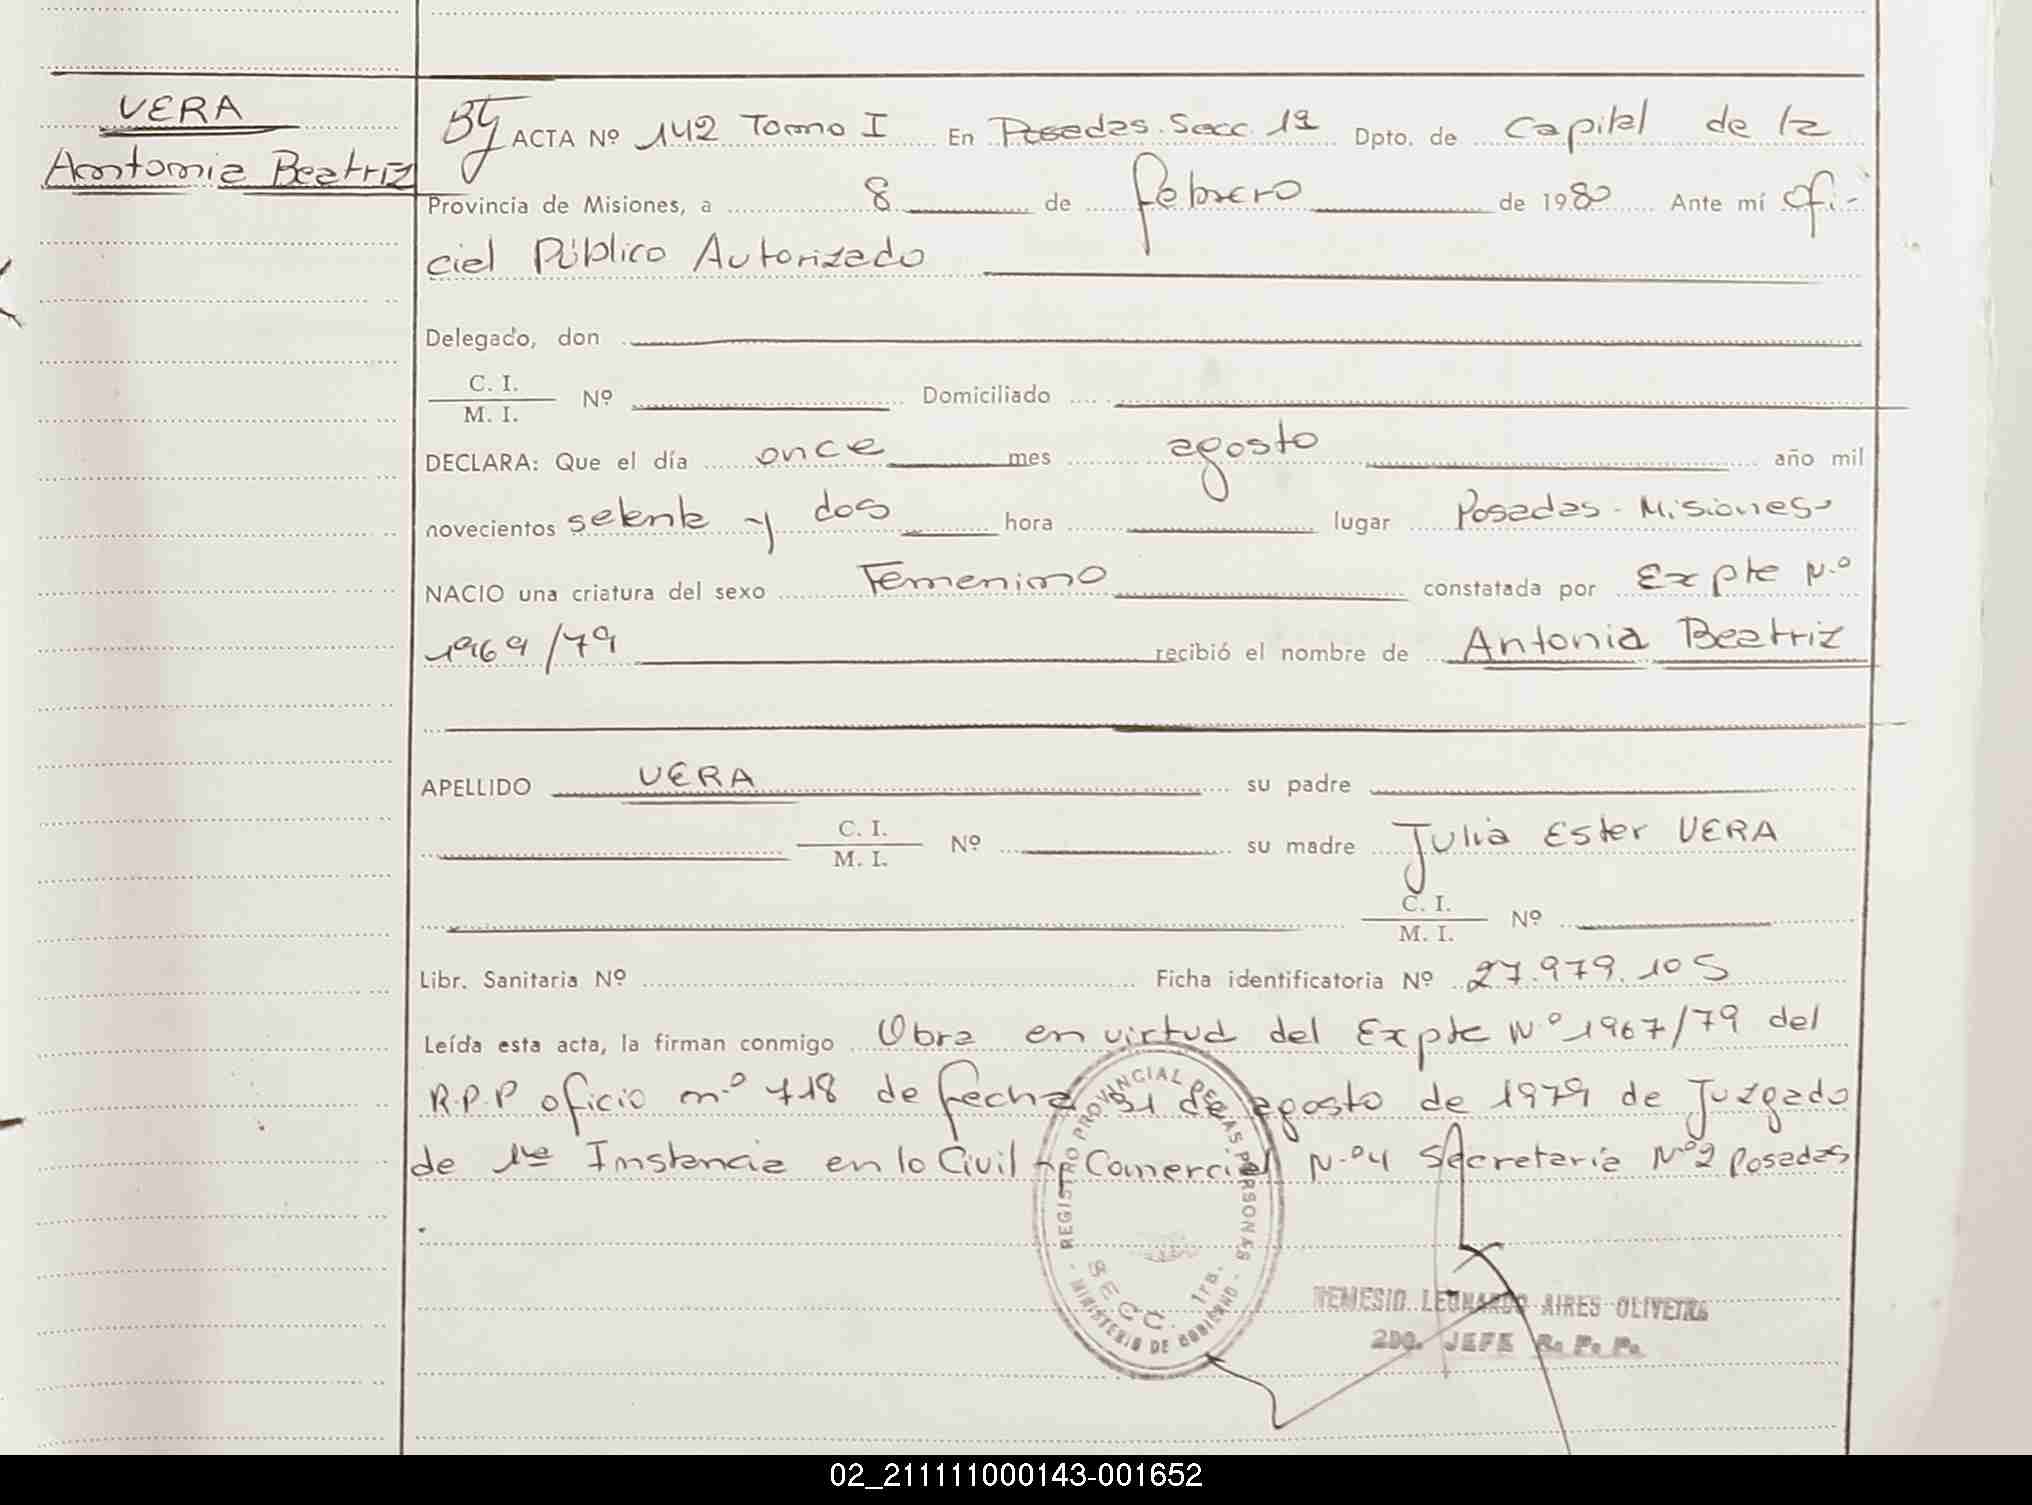 VERA
Antonia Beatriz
ACTA Nº 142 Tomo I En Posadas. Secc. 1ª Dpto. de Capital de la
Provincia de Misiones, a 8 de febrero de 1980 Ante mí ofi-
cial Público Autorizado
Delegado, don
C. I.
M. I. Nº Domiciliado
DECLARA: Que el día once mes agosto año mil
novecientos setenta y dos hora lugar Posadas - Misiones
NACIO una criatura del sexo Femenino constatada por Expte N.º
1969/79 recibió el nombre de Antonia Beatriz
APELLIDO VERA su padre
C. I.
M. I. Nº su madre Julia Ester VERA
C. I.
M. I. Nº
Libr. Sanitaria Nº Ficha identificatoria Nº 27.979.105
Leída esta acta, la firman conmigo Obra en virtud del Expte N.º 1967/79 del
R.P.P oficio n.º 718 de fecha 31 de agosto de 1979 de Juzgado
de 1ra Instancia en lo Civil y Comercial N.º 4 Secretaria Nº 2 Posadas
REGISTRO PROVINCIAL DE LAS PERSONAS
SECC. 1ra.
- MINISTERIO DE GOBIERNO -
NEMESIO LEONARDO AIRES OLIVEIRA
2DO. JEFE R. P. P.
02_211111000143-001652